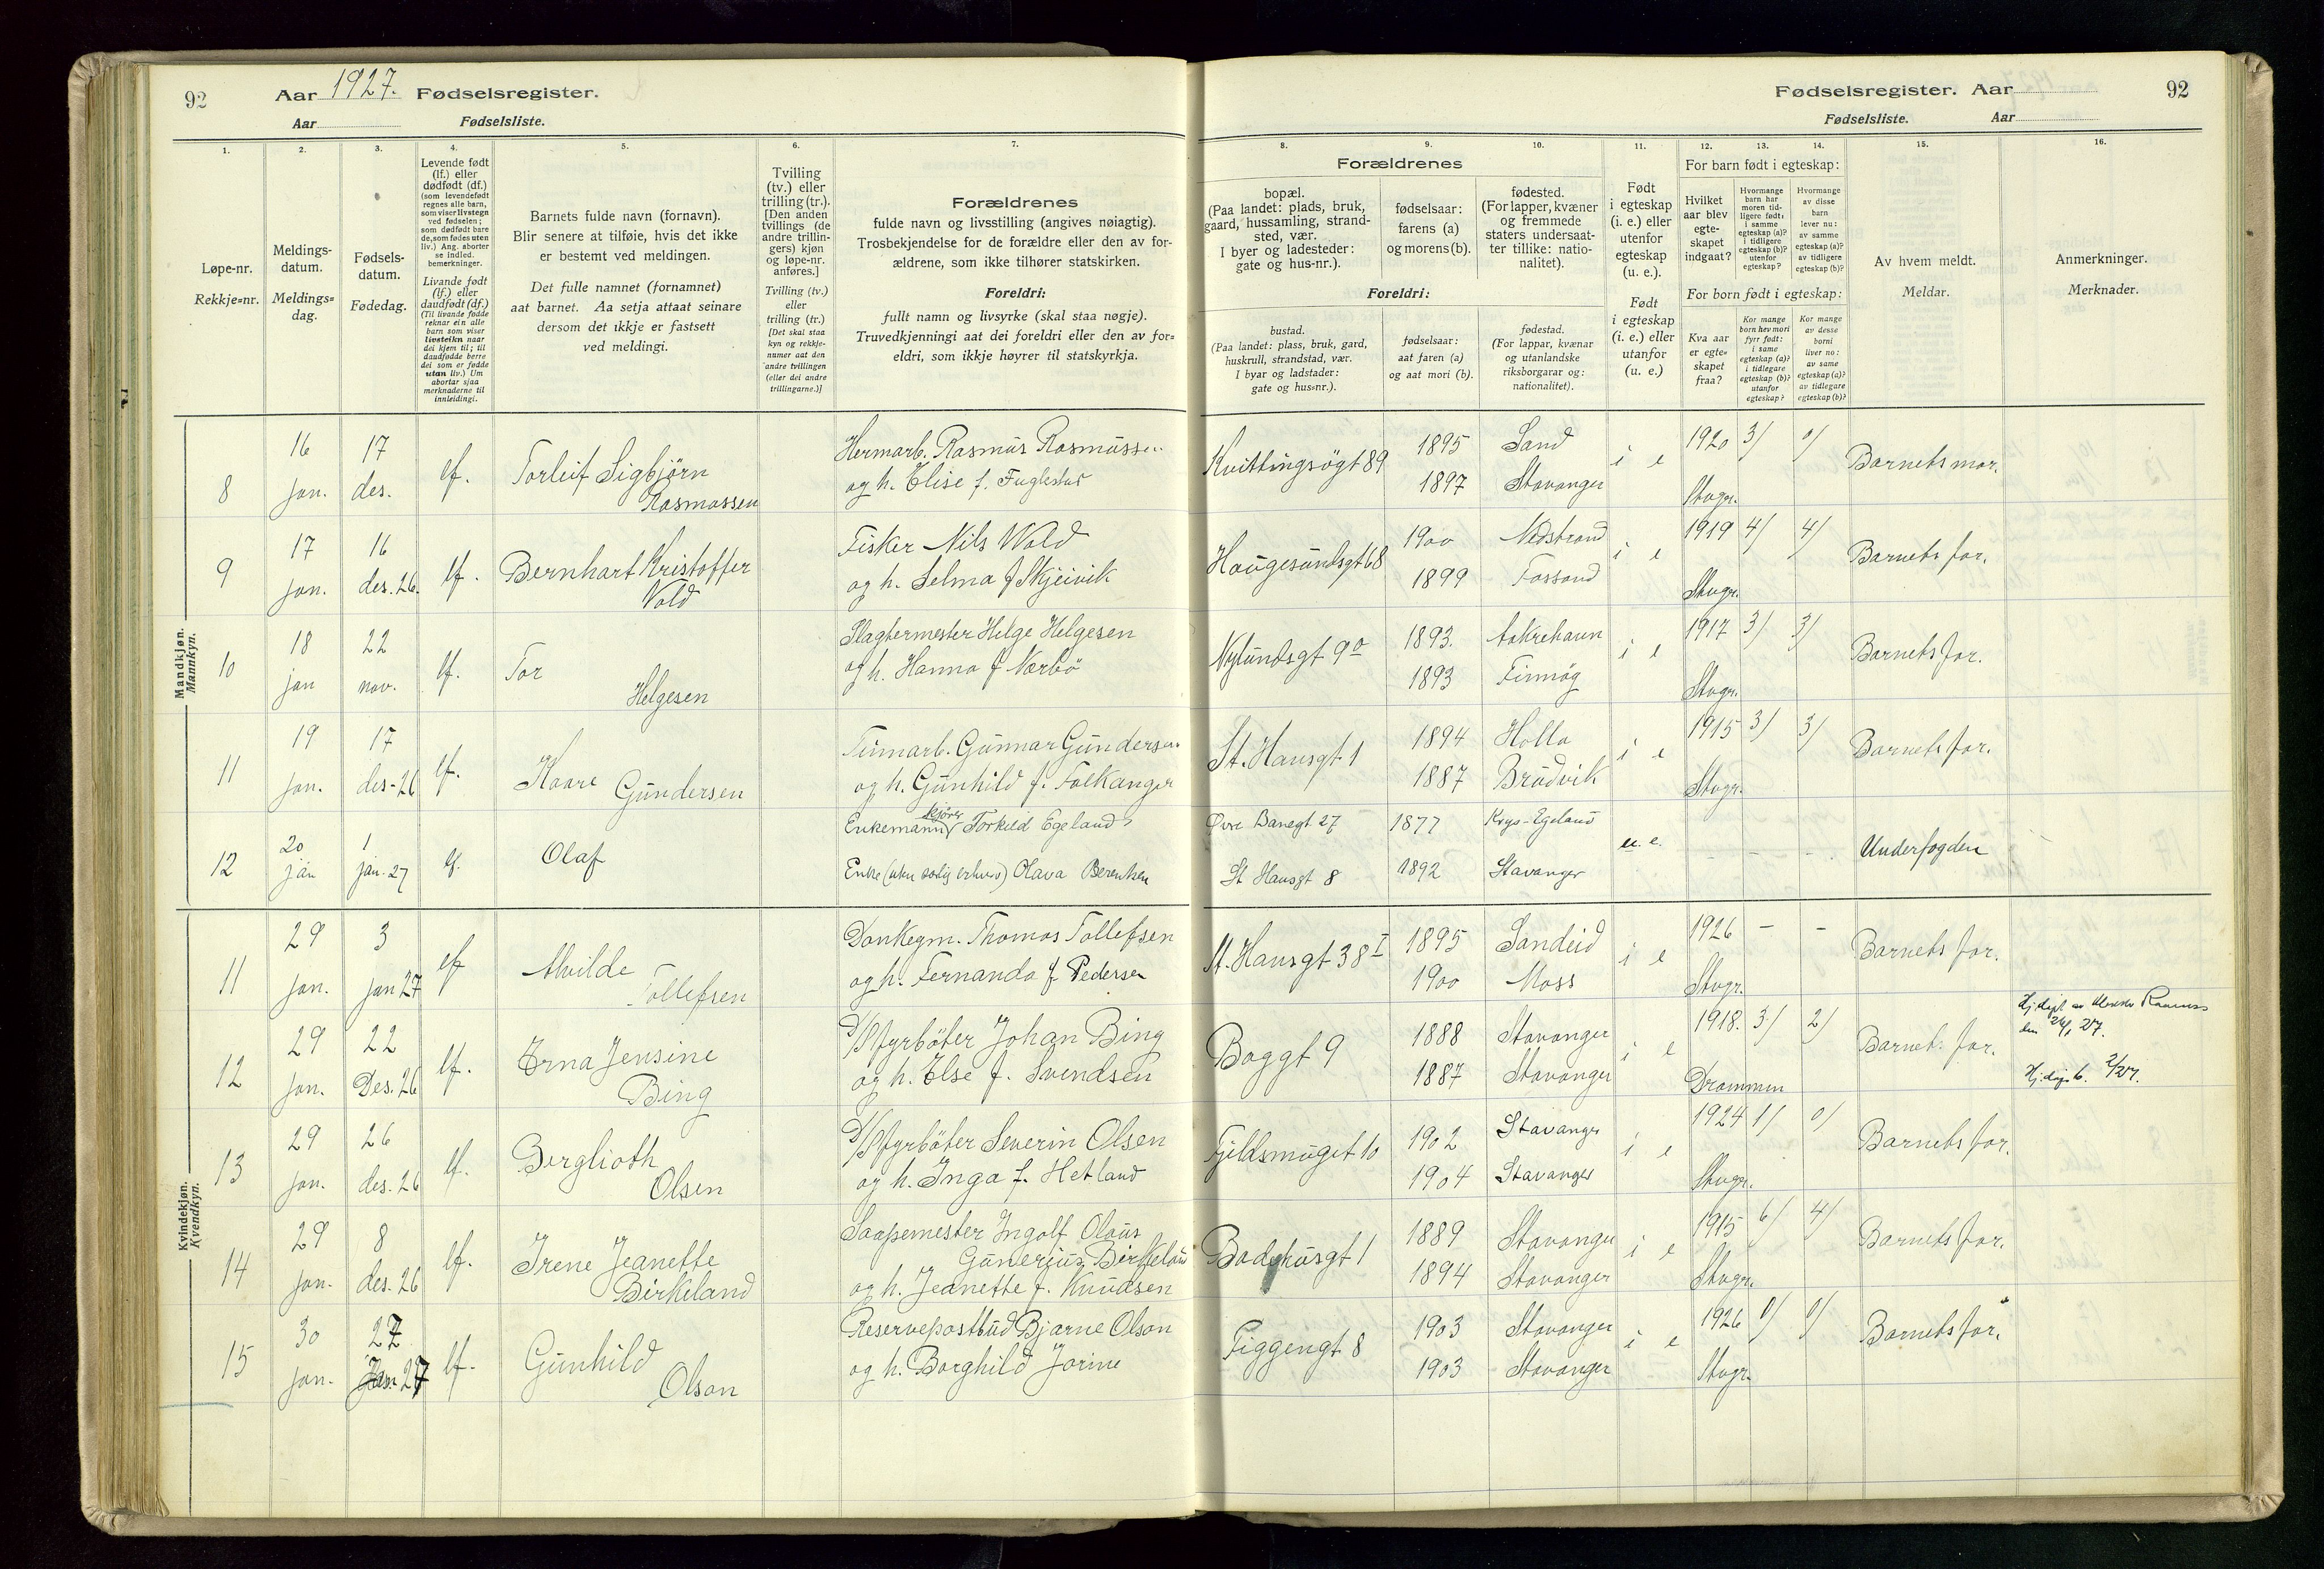 92
Aar 1927. Fødselsregister.
Aar Fødselsliste.
Fødselsregister. Aar
92
Fødselsliste. Aar
1.
2.
3.
4.
5.
6.
7.
8.
9.
10.
11.
12.
13.
14.
15.
16.
Løpe-nr.
Rekkje=nr.
Meldings-
datum.
Meldings=
dag.
Fødsels-
datum.
Fødedag.
Levende født
(lf.) eller
dødfødt (df.)
(som levendefødt
regnes alle barn,
som viser livstegn
ved fødselen;
som dødfødt bare
de, som fødes uten
liv.) Ang. aborter
se indled.
bemerkninger.
Livande født
(lf.) eller
daudfødt (df.)
(Til livande fødde
reknar ein alle
barn som viser
livsteikn naar
dei kjem til; til
daudfødde berre
dei som er fødde
utan liv.) Um
abortar sjaa
merknaderne til
innleidingi.
Barnets fulde navn (fornavn).
Blir senere at tilføie, hvis det ikke
er bestemt ved meldingen.
Det fulle namnet (fornamnet)
aat barnet. Aa setja attaat seinare
dersom det ikkje er fastsett
ved meldingi.
Tvilling
(tv.) eller
trilling (tr.).
[Den anden
tvillings (de
andre trillin-
gers) kjøn
og løpe-nr.
anføres.]
Tvilling (tv.)
eller
trilling (tr.)
[Det skal staa
kyn og rekkje-
numer aat den
andre tvillingen
(eller dei andre
trillingarne.)]
Forældrenes
fulde navn og livsstilling (angives nøiagtig).
Trosbekjendelse for de forældre eller den av for-
ældrene, som ikke tilhører statskirken.
Foreldri:
fullt namn og livsyrke (skal staa nøgje).
Truvedkjenningi aat dei foreldri eller den av for=
eldri, som ikkje høyrer til statskyrkja.
Forældrenes
bopæl.
(Paa landet: plads, bruk,
gaard, hussamling, strand-
sted, vær.
I byer og ladesteder:
gate og hus-nr.).
fødselsaar:
farens (a)
og morens (b).
fødested.
(For lapper, kvæner
og fremmede
staters undersaat-
ter tillike: natio-
nalitet).
Foreldri:
bustad.
(Paa landet: plass, bruk, gard,
huskrull, strandstad, vær.
I byar og ladstader:
gate og hus=nr.).
fødselsaar:
aat faren (a)
og aat mori (b).
fødestad.
(For lappar, kvænar
og utanlandske
riksborgarar og:
nationalitet).
Født
i egteskap
(i. e.) eller
utenfor
egteskap
(u. e.).
Født
i egteskap
(i. e.) eller
utanfor
(u. e.)
For barn født i egteskap:
Hvilket
aar blev
egte-
skapet
indgaat?
Hvormange
barn har
moren tid-
ligere født:
i samme
egteskap (a)?
i tidligere
egteskap (b)?
utenfor
egteskap?
Hvormange
av disse
barn
lever nu:
av samme
egteskap (a)?
av tidligere
egteskap (b)?
For born født i egteskap:
Kva aar
er egte=
skapet
fraa?
Kor mange
born hev mori
fyrr født:
i same
egteskap (a)?
i tidlegare
egteskap (b)?
utanfor
egteskap?
Kor mange
av desse
borni
liver no:
av same
egteskap (a)?
av tidlegare
egteskap (b)?
Av hvem meldt.
Meldar.
Anmerkninger.
Merknader.
Mandkjøn.
Mannkyn.
8 16 jan. 17 des. lf. Torleif Sigbjörn Rasmussen
Hermarb. Rasmus Rasmussen
og h. Elise f. Fuglestad
Kvittingsögt 89 1895 Sand i e 1920 3/ 0/ Barnets mor.
1897 Stavanger Stvgr.
9 17 jan. 16 des. 26. lf. Bernhart Kristoffer Vold
Fisker Nils Vold
og h. Selma f Skjeivik
Haugesundsgt 68 1900 Nedstrand i e 1919 4/ 4/ Barnets far.
1899 Fossand Stvgr.
10 18 jan 22 nov. lf. Tor Helgesen
Slagtermester Helge Helgesen
og h. Hanna f Nærbö
Nylundsgt 9a 1893. Aakrehavn i e 1917 3/ 3/ Barnets far.
1893 Finnöy Stvgr.
11 19 jan. 17 des-26 lf. Kaare Gundersen
Tinnarb. Gunnar Gundersen
og h. Gunhild f. Folkanger
St. Hansgt 1 1894 Holla i e 1915 3/ 3/ Barnets far.
1887 Brudvik Stvgr.
12 20 jan 1 jan. 27 lf. Olaf
Enkemann kjörer Torkild Egeland
Enke Olava Berentsen
Øvre Banegt 27 1877 Egeland u. e. - - - Underfogden
St Hansgt 8 1892 Stavanger
Kvindekjøn.
Kvendkyn.
11 29 jan. 3 jan 27 lf Alvilde Tollefsen
Dankegm. Thomas Tollefsen
og h. Fernanda f Pedersen
St. Hansgt 38 I 1895 Sandeid i e 1926 - - Barnets far.
1900 Moss Stvgr.
12 29 jan. 22 Des. 26 lf. Erna Jensine Bing
D/S fyrböter Johan Bing
og h. Else f. Svendsen
Baggt 9 1888 Stavanger i e 1918. 3/ 2/ Barnets far.
1887 Stavanger Drammen
13 29 jan. 26 des. 26 lf. Berglioth Olsen
D/S fyrböter Severin Olsen
og h. Inga f. Hetland
Fjeldsmuget 10 1902 Stavanger i e 1924 1/ 0/ Barnets far.
1904 Stavanger Stvgr.
14 29 jan. 8 des. 26 lf. Irene Jeanette Birkeland
Saapemester Ingolf Olaus
Gunerius Birkeland
og h. Jeanette f. Knudsen
Badehusgt 1 1889 Stavanger i e 1915 6/ 4/ Barnets far.
1894 Stavanger Stvgr.
15 30 jan. 27 Jan. 27 lf. Gunhild Olson
Reservepostbud Bjarne Olson
og h. Borghild Jorine
Figgengt 8 1903 Stavanger i e 1926 0/ 0/ Barnets far.
1903 Stavanger Stvgr.